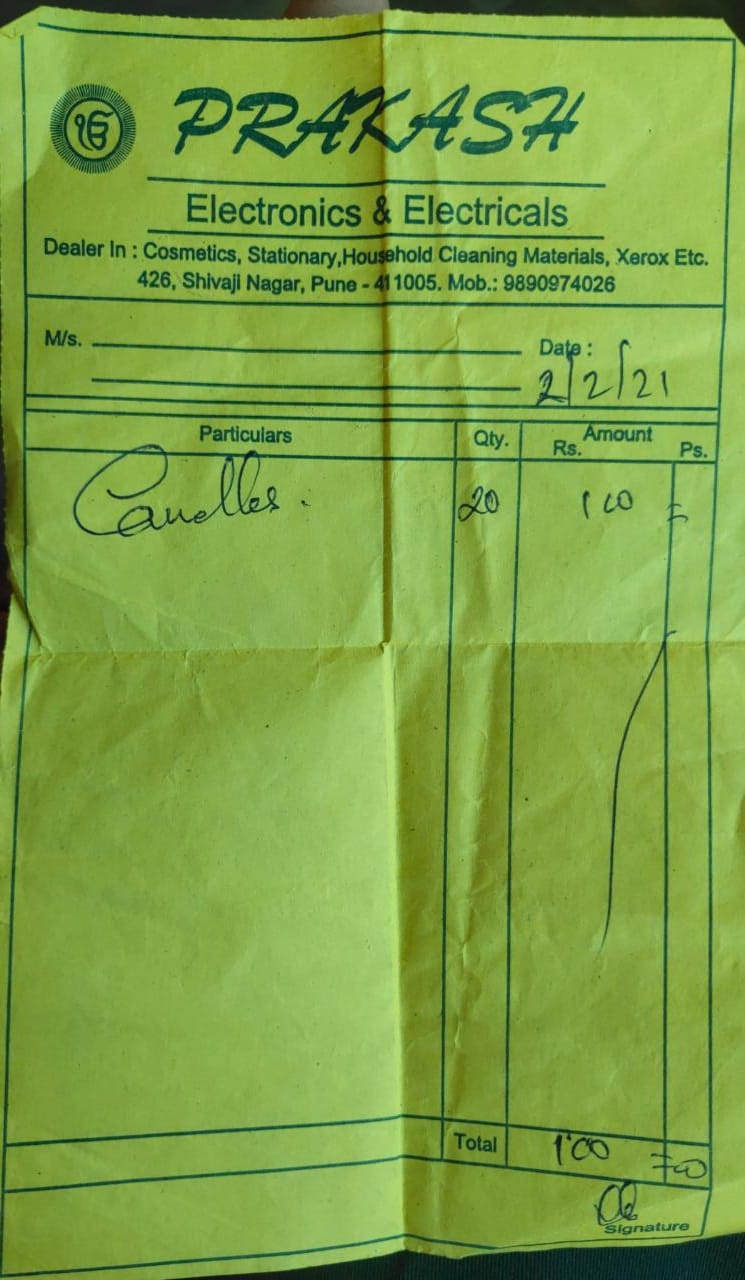 ੴ PRAKASH
Electronics & Electricals
Dealer In : Cosmetics, Stationary,Household Cleaning Materials, Xerox Etc.
426, Shivaji Nagar, Pune - 411005. Mob.: 9890974026
M/s. Date :
2/2/21
Particulars Qty. Amount
Rs. Ps.
Candles. 20 100 =
Total 100 =00
Signature